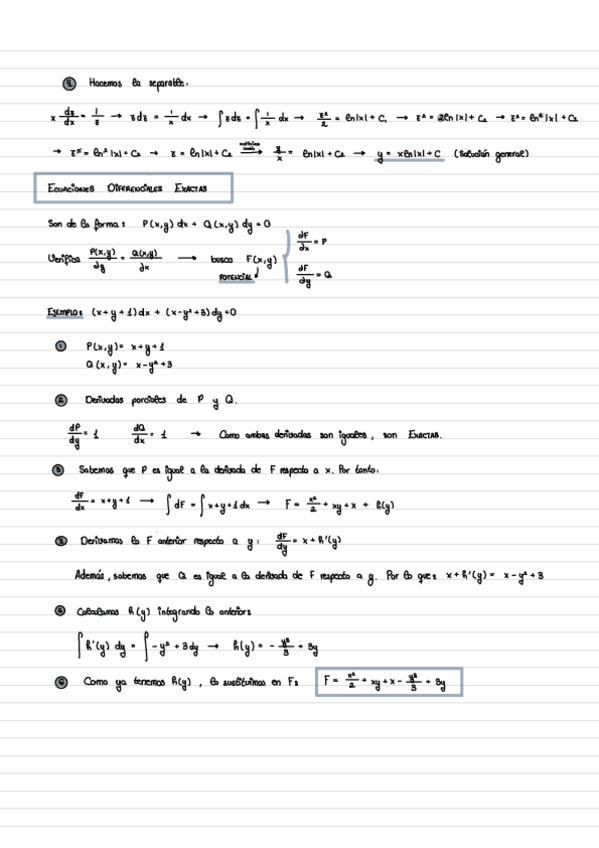 ④ Hacemos la separable:
x dz/dx = 1/z → z dz = 1/x dx → ∫ z dz = ∫ 1/x dx → z²/2 = ln|x| + C, → z² = 2ln|x| + C₂ → z² = ln²|x| + C₂
→ z² = ln²|x| + C₂ → z = ln|x| + C₂ → y/x = ln|x| + C₂ → y = xln|x| + C (Solución general)
ECUACIONES DIFERENCIALES EXACTAS
Son de la forma: P(x,y) dx + Q(x,y) dy = 0
Verifica P(x,y)/dy = Q(x,y)/dx → busco F(x,y) { dF/dx = P
POTENCIAL dF/dy = Q
EJEMPLO: (x+y+1)dx + (x-y²+3)dy=0
① P(x,y) = x+y+1
Q(x,y) = x-y²+3
② Derivadas parciales de P y Q.
dP/dy = 1 dQ/dx = 1 → Como ambas derivadas son iguales, son EXACTAS.
③ Sabemos que P es igual a la derivada de F respecto a x. Por tanto:
dF/dx = x+y+1 → ∫ dF = ∫ x+y+1 dx → F = x²/2 + xy + x + h(y)
Derivamos la F anterior respecto a y: dF/dy = x + h'(y)
Además, sabemos que Q es igual a la derivada de F respecto a y. Por lo que: x + h'(y) = x - y² + 3
Calculamos h(y) integrando lo anterior:
∫ h'(y) dy = ∫ -y² + 3 dy → h(y) = - y³/3 + 3y
⑥ Como ya tenemos h(y), lo sustituimos en F: F = x²/2 + xy + x - y³/3 + 3y